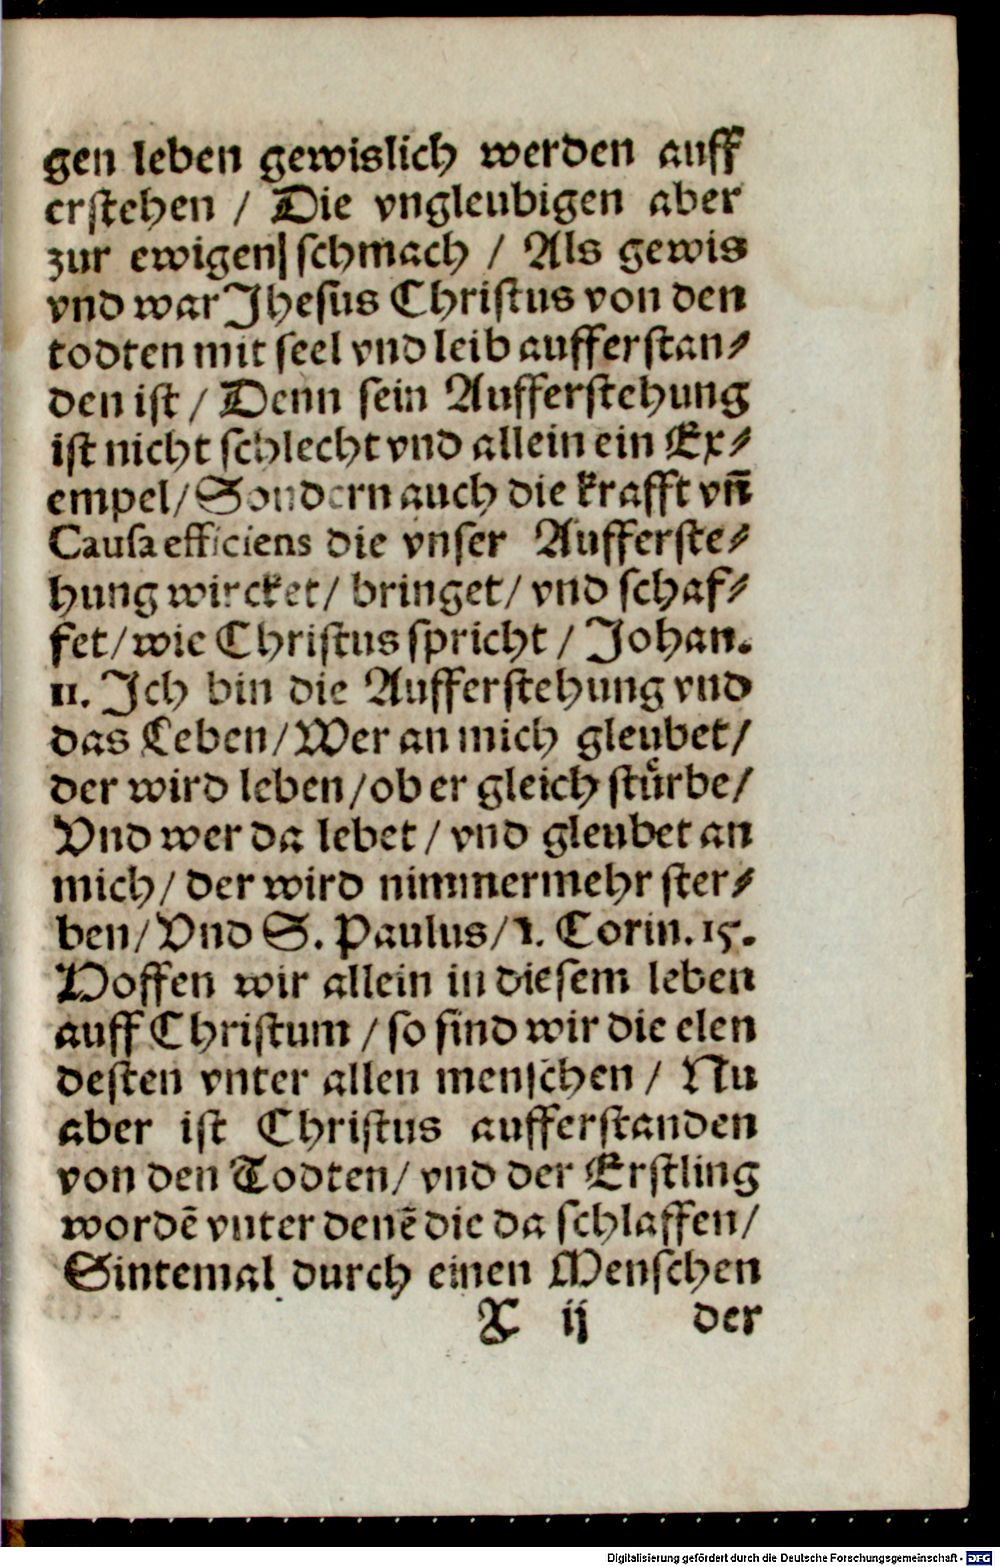 gen leben gewislich werden auff
erstehen / Die vngleubigen aber
zur ewigen schmach / Als gewis
vnd war Jhesus Christus von den
todten mit seel vnd leib aufferstan⸗
den ist / Denn sein Aufferstehung
ist nicht schlecht vnd allein ein Ex⸗
empel / Sondern auch die krafft vn̄
Causa efficiens die vnser Aufferste⸗
hung wircket / bringet / vnd schaf⸗
fet / wie Christus spricht / Johan.
11. Ich bin die Aufferstehung vnd
das Leben / Wer an mich gleubet /
der wird leben / ob er gleich stuͤrbe /
Vnd wer da lebet / vnd gleubet an
mich / der wird nimmermehr ster⸗
ben / Vnd S. Paulus / 1. Corin. 15.
Hoffen wir allein in diesem leben
auff Christum / so sind wir die elen
desten vnter allen menschen / Nu
aber ist Christus aufferstanden
von den Todten / vnd der Erstling
wordē vnter denē die da schlaffen /
Sintemal durch einen Menschen
X ij der
Digitalisierung gefördert durch die Deutsche Forschungsgemeinschaft - DFG